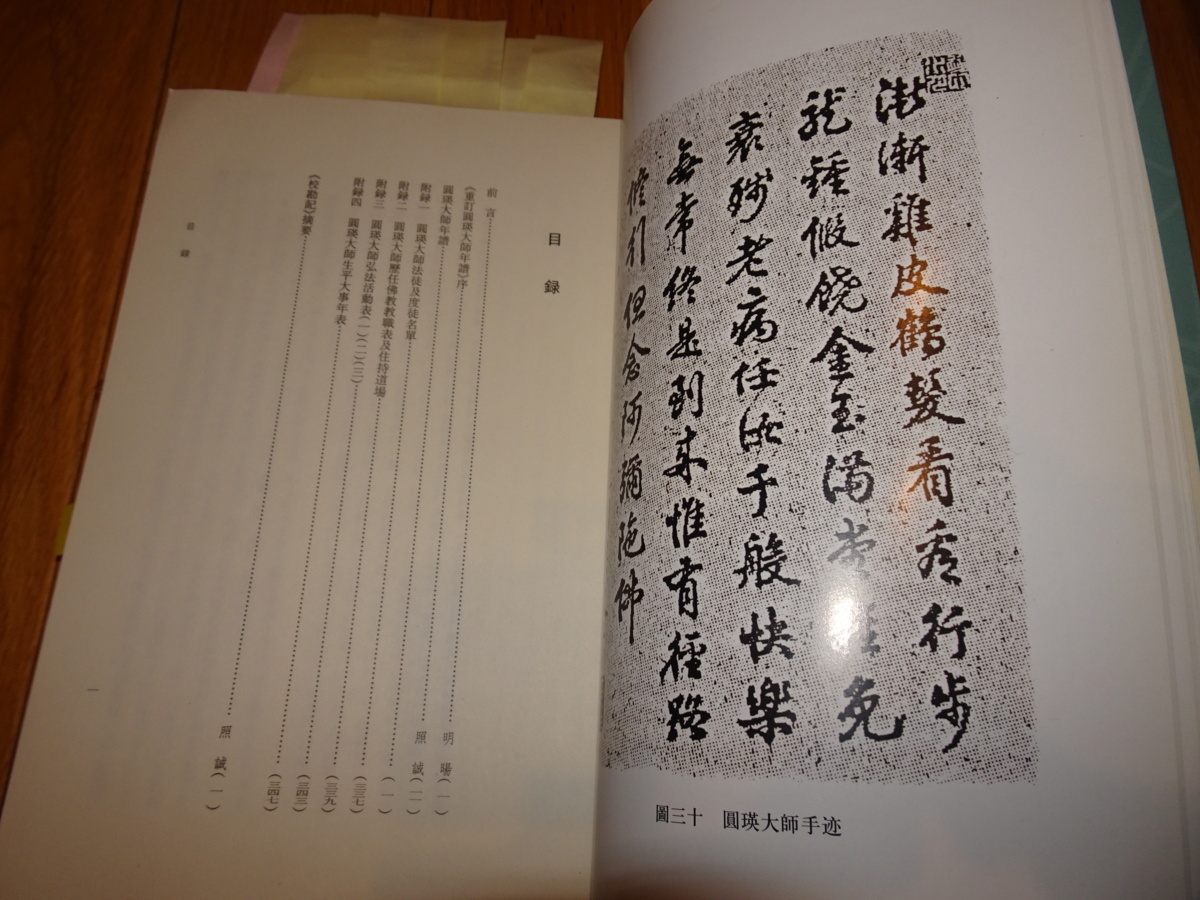 漸漸雞皮鶴髮看看行步
龍鍾假饒金玉滿堂免
衰殘老病任汝千般快樂
無常終是到來惟有徑路
修行但念阿彌陀佛
圖三十　圓瑛大師手迹
目録
前言……明暘(一)
《重訂圓瑛大師年譜》序……照誠(一一)
圓瑛大師年譜……(一)
附録一　圓瑛大師法徒及度徒名單……(三三七)
附録二　圓瑛大師歷任佛教教職表及住持道場……(三三九)
附録三　圓瑛大師弘法活動表(一)(二)(三)……(三四三)
附録四　圓瑛大師生平大事年表……(三四七)
《校勘記》摘要……照誠(一)
目録
一